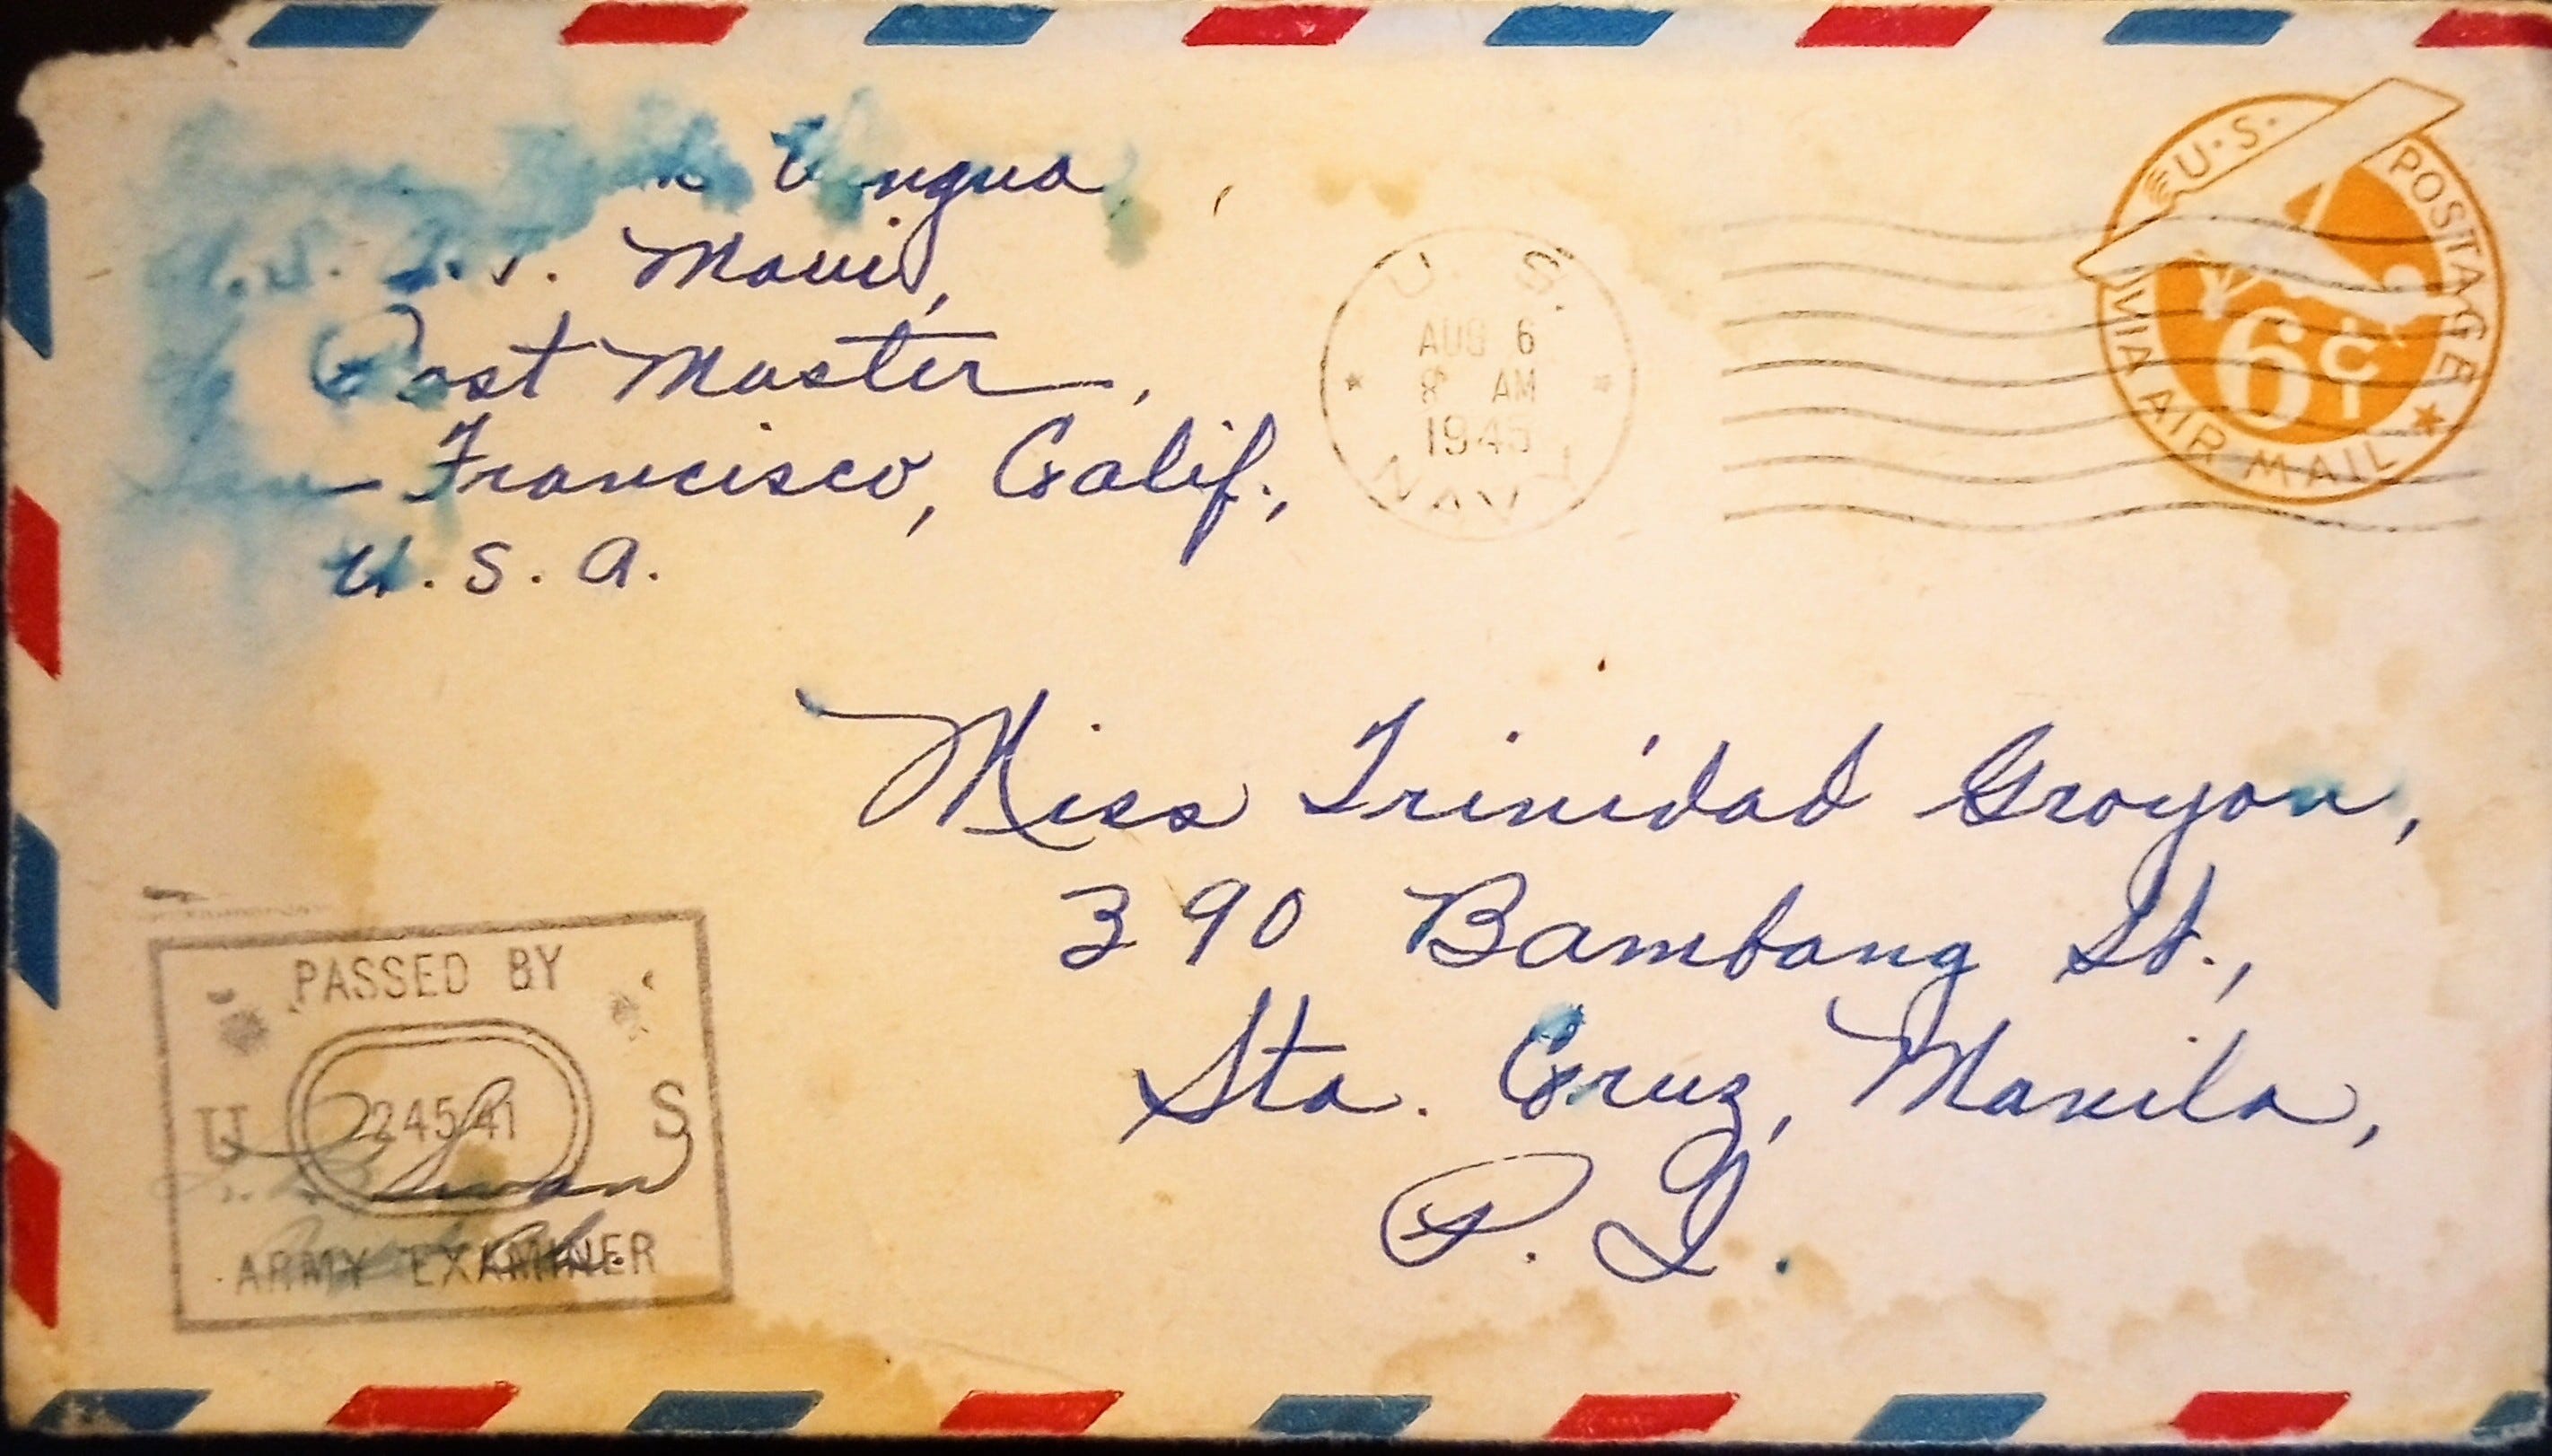 U.S.A.T. Maui,
Post Master,
San Francisco, Calif.,
U.S.A.
U.S. POSTAGE
VIA AIR MAIL
6¢
U.S.
AUG 6
8 AM
1945
NAVY
Miss Trinidad Groyon,
390 Bambang St.,
Sta. Cruz, Manila,
P.I.
PASSED BY
U 2245/41 S
ARMY EXAMINER